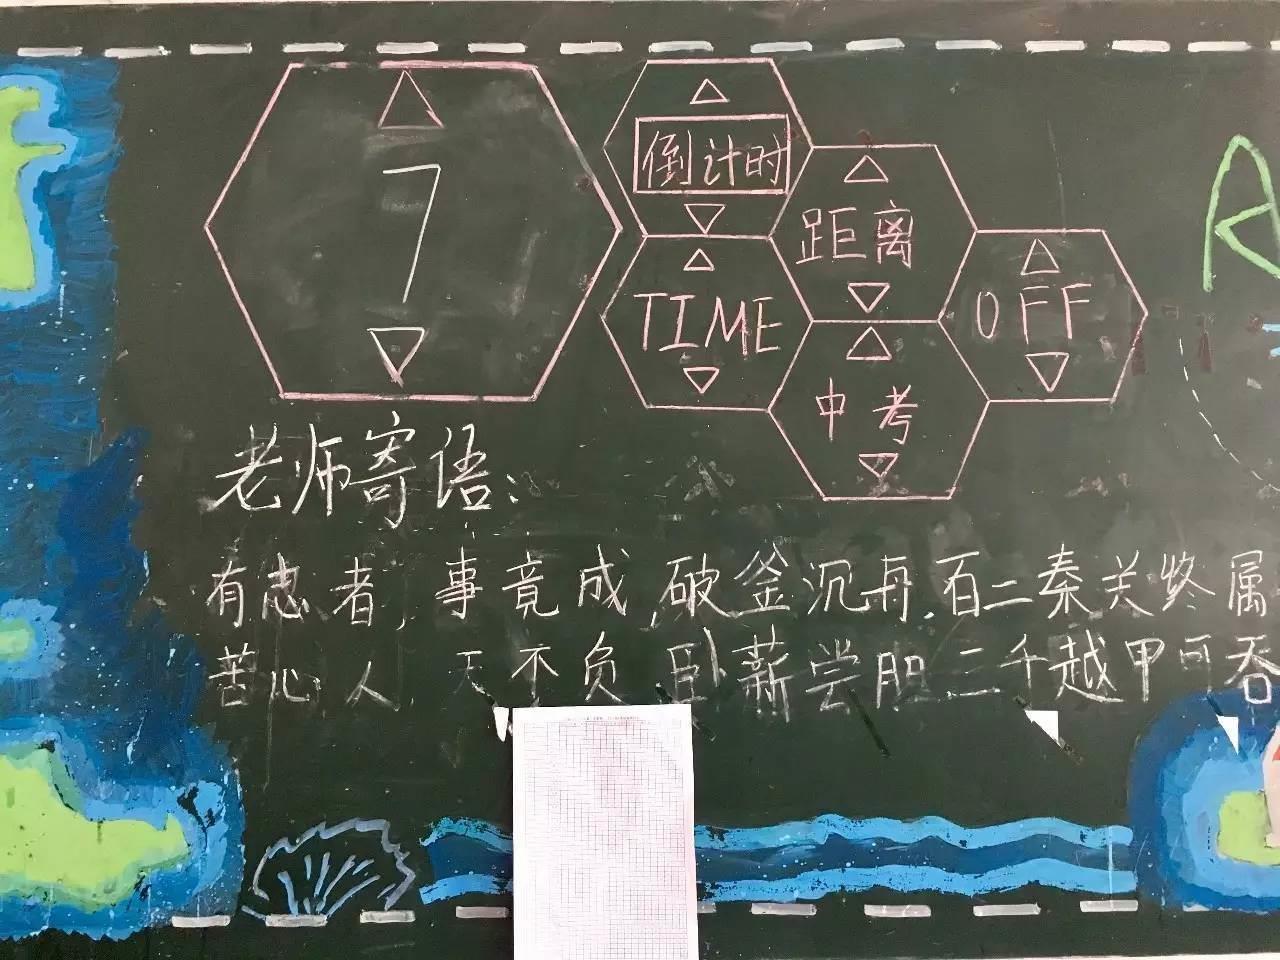 7
倒计时
距离
TIME
OFF
中考
老师寄语:
有志者,事竟成,破釜沉舟,百二秦关终属
苦心人,天不负,卧薪尝胆三千越甲可吞
A